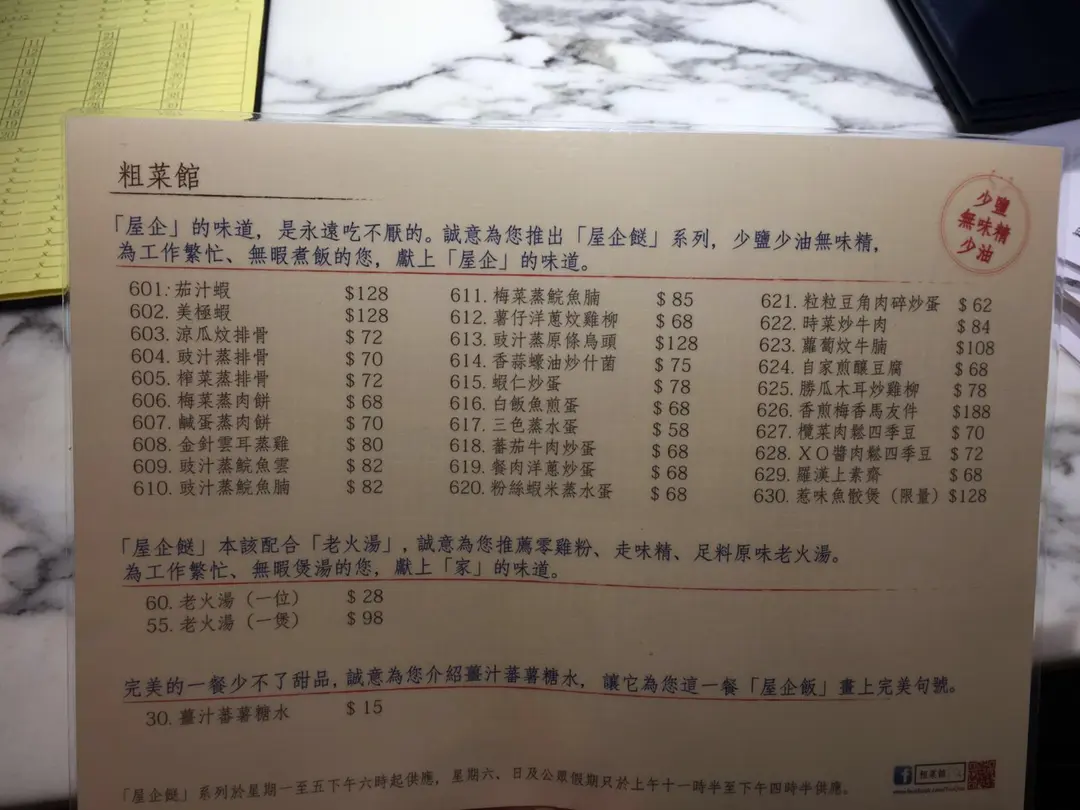 粗菜館
少鹽
無味精
少油
「屋企」的味道，是永遠吃不厭的。誠意為您推出「屋企餸」系列，少鹽少油無味精，
為工作繁忙、無暇煮飯的您，獻上「屋企」的味道。
601. 茄汁蝦 $128
602. 美極蝦 $128
603. 涼瓜炆排骨 $ 72
604. 豉汁蒸排骨 $ 70
605. 榨菜蒸排骨 $ 72
606. 梅菜蒸肉餅 $ 68
607. 鹹蛋蒸肉餅 $ 70
608. 金針雲耳蒸雞 $ 80
609. 豉汁蒸鯇魚雲 $ 82
610. 豉汁蒸鯇魚腩 $ 82
611. 梅菜蒸鯇魚腩 $ 85
612. 薯仔洋蔥炆雞柳 $ 68
613. 豉汁蒸原條烏頭 $128
614. 香蒜蠔油炒什菌 $ 75
615. 蝦仁炒蛋 $ 78
616. 白飯魚煎蛋 $ 68
617. 三色蒸水蛋 $ 58
618. 蕃茄牛肉炒蛋 $ 68
619. 餐肉洋蔥炒蛋 $ 68
620. 粉絲蝦米蒸水蛋 $ 68
621. 粒粒豆角肉碎炒蛋 $ 62
622. 時菜炒牛肉 $ 84
623. 蘿蔔炆牛腩 $108
624. 自家煎釀豆腐 $ 68
625. 勝瓜木耳炒雞柳 $ 78
626. 香煎梅香馬友件 $188
627. 欖菜肉鬆四季豆 $ 70
628. ＸＯ醬肉鬆四季豆 $ 72
629. 羅漢上素齋 $ 68
630. 惹味魚骰煲（限量） $128
「屋企餸」本該配合「老火湯」，誠意為您推薦零雞粉、走味精、足料原味老火湯。
為工作繁忙、無暇煲湯的您，獻上「家」的味道。
60. 老火湯（一位） $ 28
55. 老火湯（一煲） $ 98
完美的一餐少不了甜品，誠意為您介紹薑汁蕃薯糖水，讓它為您這一餐「屋企飯」畫上完美句號。
30. 薑汁蕃薯糖水 $ 15
「屋企餸」系列於星期一至五下午六時起供應，星期六、日及公眾假期只於上午十一時半至下午四時半供應。
f 粗菜館